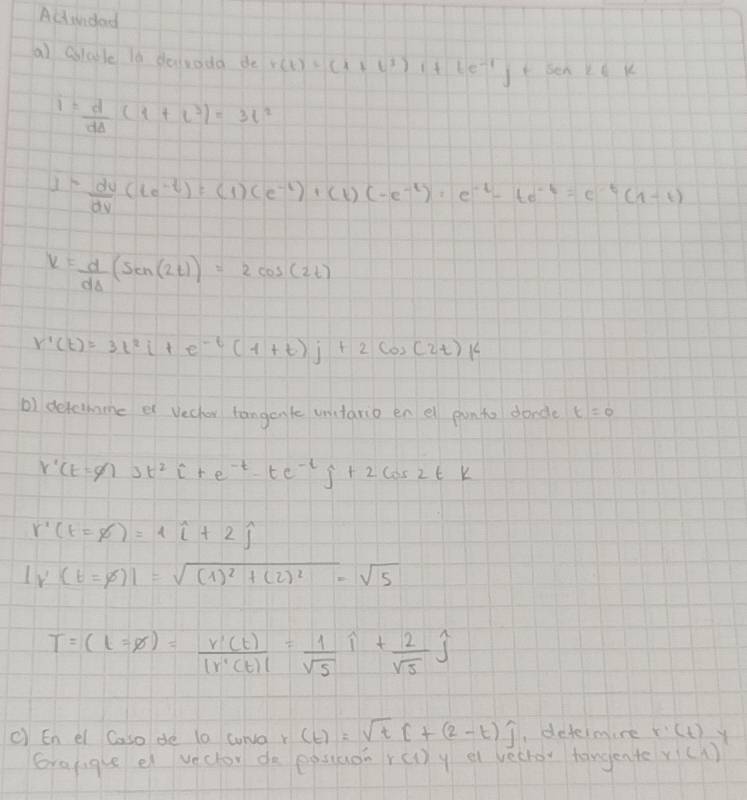 Actividad
a) Calcule la derivada de r(t) = (1 + t³) i + te⁻ᵗ j + sen 2t k
i = d/dΔ (1 + t³) = 3t²
j = dy/dv (te⁻ᵗ) = (1)(e⁻ᵗ) + (t)(-e⁻ᵗ) = e⁻ᵗ - te⁻ᵗ = e⁻ᵗ(1-t)
k = d/dΔ (sen(2t)) = 2 cos(2t)
r'(t) = 3t² i + e⁻ᵗ (1+t) j + 2 cos(2t) k
b) determine el vector tangente unitario en el punto donde t = 0
r'(t=0) 3t² î + e⁻ᵗ - te⁻ᵗ ĵ + 2 cos 2t k
r'(t=0) = 1 î + 2 ĵ
|r'(t=0)| = √((1)² + (2)²) = √5
T = (t=0) = r'(t)/|r'(t)| = 1/√5 î + 2/√5 ĵ
c) En el caso de la curva r(t) = √t î + (2-t) ĵ, determine r'(t) y
Grafique el vector de posición r(1) y el vector tangente r'(1)